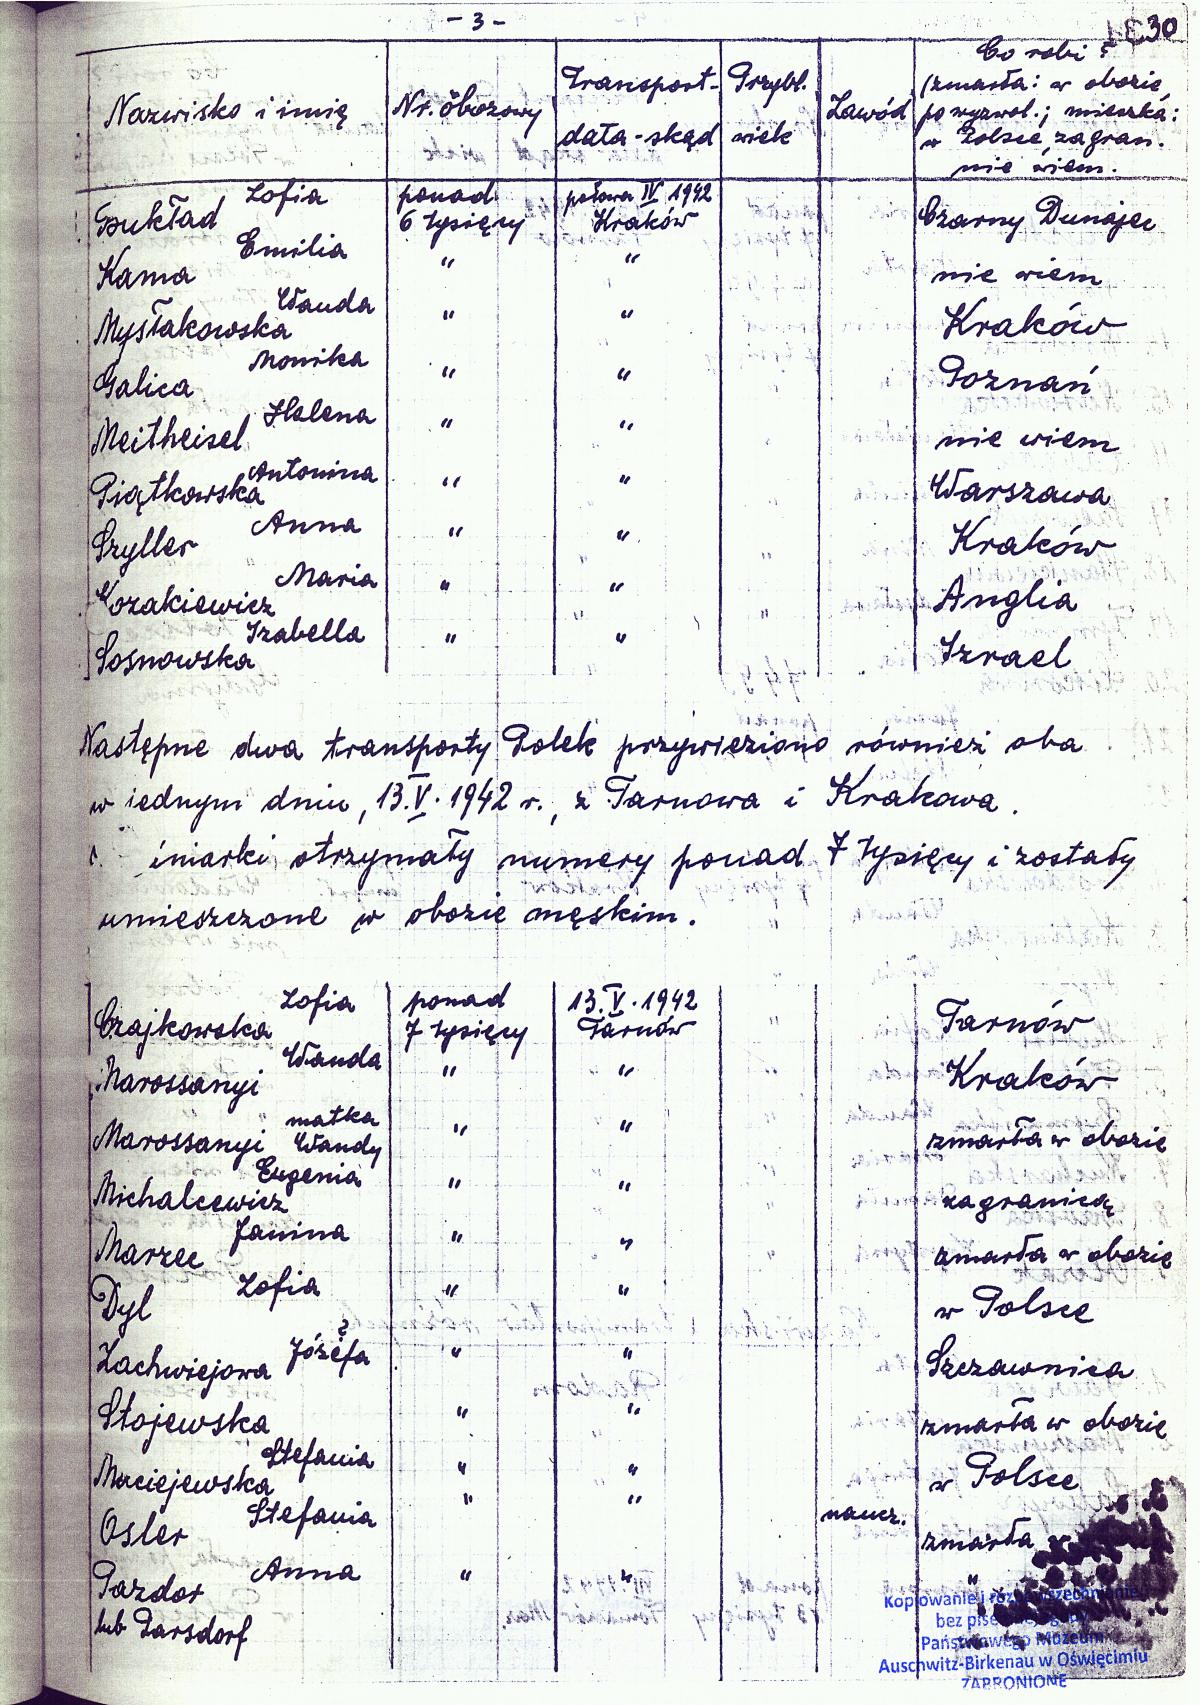 - 3 -
30
Nazwisko i imię Nr. obozowy Transport- data-skąd Przybl. wiek Zawód Co robi?
(zmarła: w obozie,
po wyzwol.; mieszka:
w Polsce, zagran.
nie wiem.
Bukład Zofia ponad 6 tysięcy połowa IV 1942 Kraków Czarny Dunajec
Kama Emilia " " nie wiem
Mysłakowska Wanda " " Kraków
Galica Monika " " Poznań
Meitheisel Helena " " nie wiem
Piątkowska Antonina " " Warszawa
Szyller Anna " " Kraków
Kozakiewicz Maria " " Anglia
Sosnowska Izabella " " Izrael
Następne dwa transporty Polek przywieziono również oba
w jednym dniu, 13.V.1942 r., z Tarnowa i Krakowa.
otrzymały numery ponad 7 tysięcy i zostały
umieszczone w obozie męskim.
Czajkowska Zofia ponad 7 tysięcy 13.V.1942 Tarnów Tarnów
Marossanyi Wanda " " Kraków
Marossanyi matka Wandy " " zmarła w obozie
Michalcewicz Eugenia " " zagranicą
Marzec Janina " " zmarła w obozie
Dyl Zofia " " w Polsce
Zachwiejowa Józefa ? " " Szczawnica
Stojewska " " zmarła w obozie
Maciejewska Stefania " " w Polsce
Osler Stefania " " naucz. zmarła w
Pazdor Anna " " "
lub Parsdorf
Kopiowanie i rozpowszechnianie
bez pisemnej zgody
Państwowego Muzeum
Auschwitz-Birkenau w Oświęcimiu
ZABRONIONE